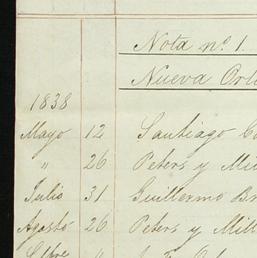 Nota nº 1.
Nueva Orl
1838
Mayo 12 Santiago
" 26 Peters y Mil
Julio 31 Guillermo Br
Agosto 26 Peters y Mill